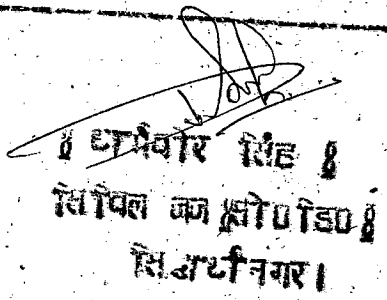 ॥ धर्मवीर सिंह ॥
सिविल जज ॥सी0डि0॥
सिद्धार्थनगर।